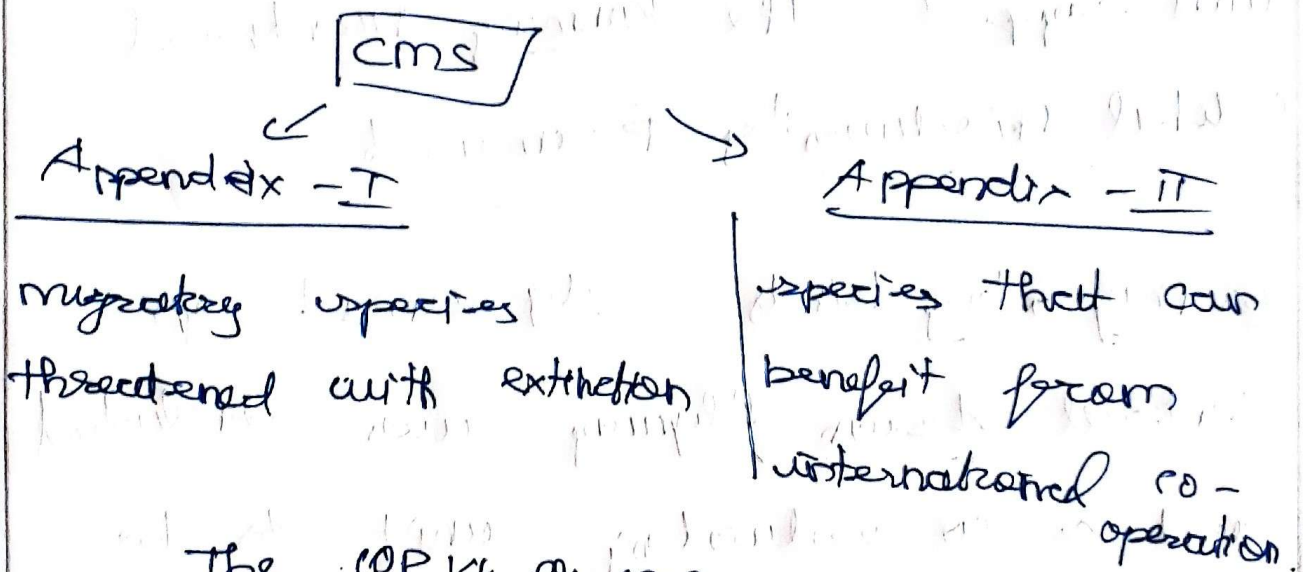 CMS
Appendix - I
Appendix - II
migratory species
threatened with extinction
species that can
benefit from
international co-
operation.
The COP